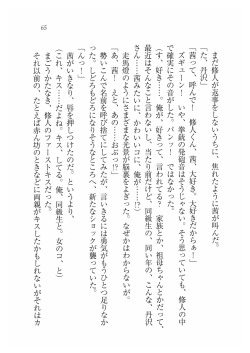 65
まだ修人が返事をしないうちに、焦れたように茜が叫んだ。
「た、丹沢」
「茜って、呼んでー！ 修人くん、茜、大好き、大好きだからぁー！」
ズギューン！ いや、拳銃の発砲音はこんなんじゃない。そう思っていても、修人の中
で確実にその音がした。バキューンでも、パンパンでもない。
（す、好き……。俺が、好きって、言われてる？ 家族とか、祖母ちゃんとかだって、
最近はそんなこと言わないし、当たり前だけど、同級生の、同い年の、こんな、丹沢
さん……茜みたいにかわいいコに、俺が……！）
走馬灯のようにさまざまな光景が脳裏をよぎった。なぜかはわからないが。
「あ、茜！ えっ……おぶ！?」
勢いこんで名前を呼び捨てにしたのだが、言いきるには勇気がもうひとつ足りなか
った。しどろもどろになりそうなところへ、新たなショックが襲っていた。
「んっ……」
茜がいきなり、唇を押しつけたのだ。というより、
（こ、これ、キス……だよね。キス、してる。俺、同級生と、女のコ、と）
まごうかたなき、修人のファーストキスだった。
それ以前の、たとえば赤ん坊のときなどに両親がキスしたかもしれないがそれはカ